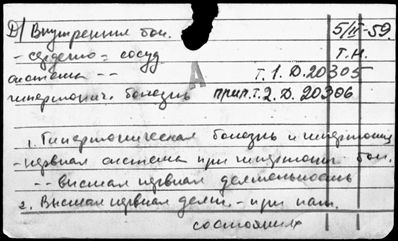 Д) Внутренния бол. 5/II-59.
- сердечно-сосуд. Т.Н.
система -- т.1. Д.20305
гипертонич. болезнь прил.т.2. Д.20306
А
1. Гипертоническая болезнь и
- нервная система при гипертонич. бол.
-- высшая нервная деятельность
2. Высшая нервная деят. - при пат.
состояниях